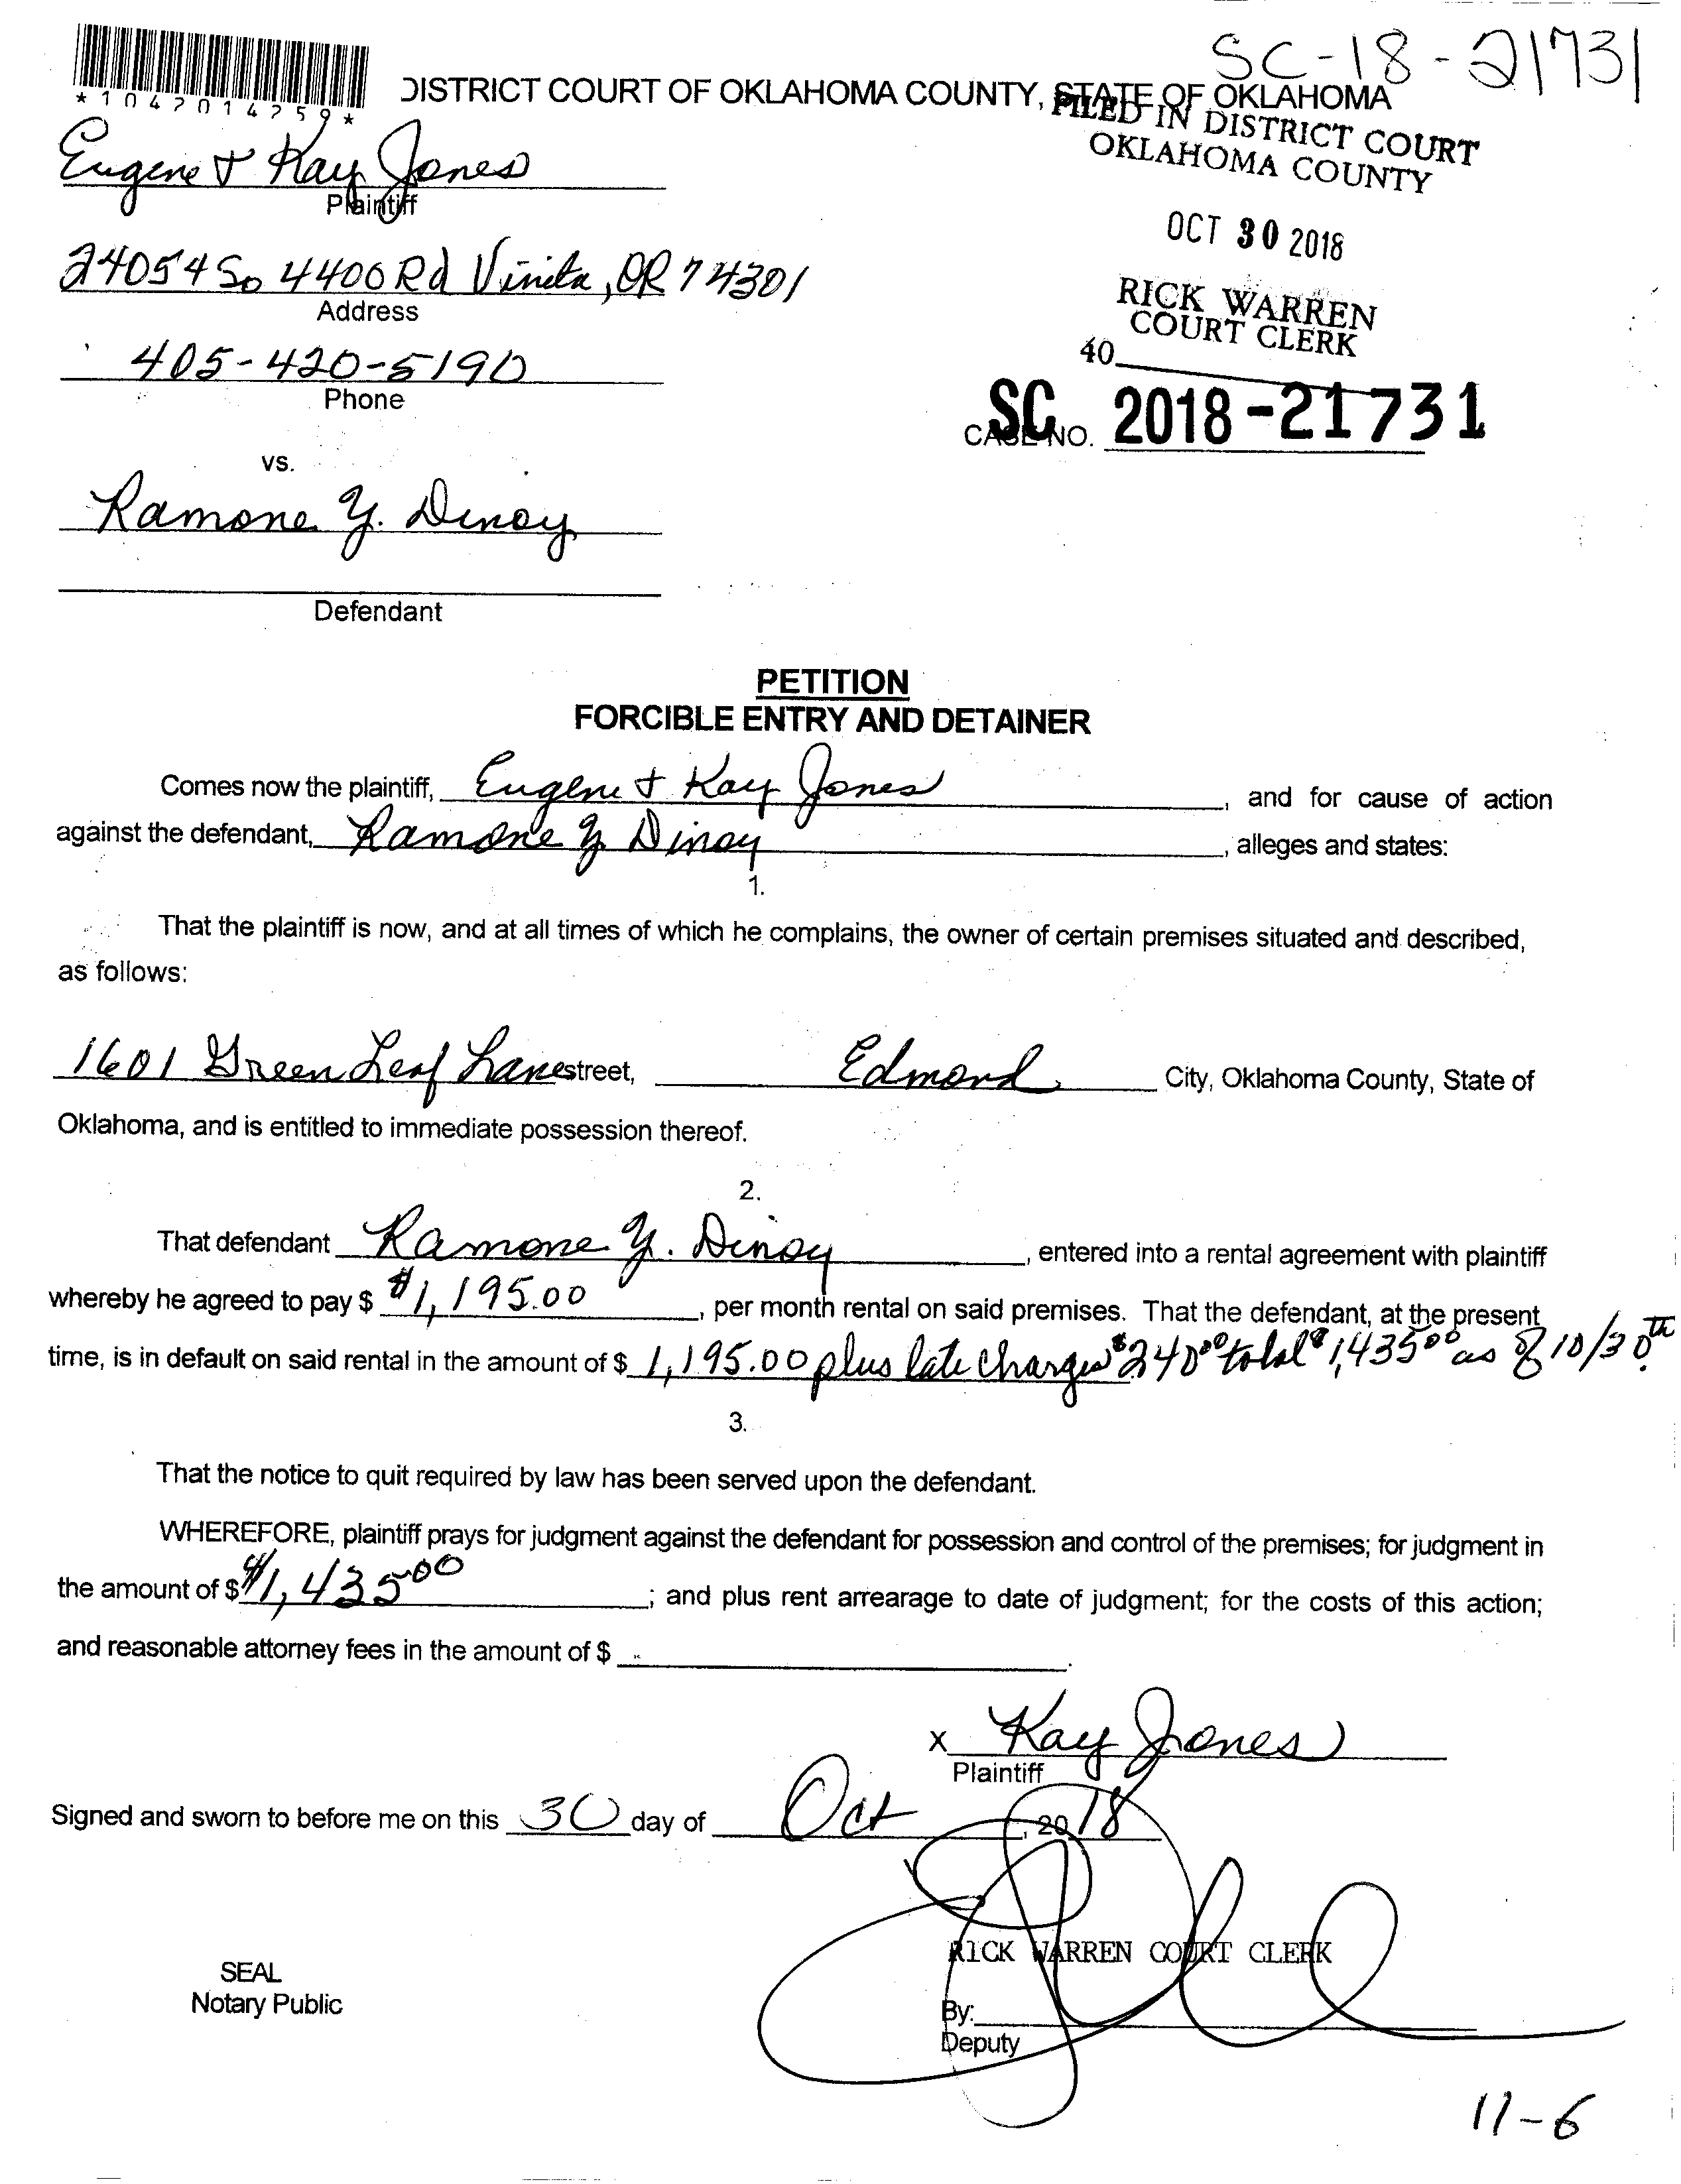 SC-18-21731
*1042014259*
DISTRICT COURT OF OKLAHOMA COUNTY, STATE OF OKLAHOMA
FILED IN DISTRICT COURT
OKLAHOMA COUNTY
Eugene & Kay Jones
Plaintiff
OCT 30 2018
24054 So 4400 Rd Vinita, OK 74301
Address
RICK WARREN
COURT CLERK
40
405-420-5190
Phone
SC
CASE NO. 2018-21731
vs.
Ramone Y. Dinoy
Defendant
PETITION
FORCIBLE ENTRY AND DETAINER
Comes now the plaintiff, Eugene & Kay Jones, and for cause of action
against the defendant, Ramone Y Dinoy, alleges and states:
1.
That the plaintiff is now, and at all times of which he complains, the owner of certain premises situated and described,
as follows:
1601 Green Leaf Lane street, Edmond City, Oklahoma County, State of
Oklahoma, and is entitled to immediate possession thereof.
2.
That defendant Ramone Y. Dinoy, entered into a rental agreement with plaintiff
whereby he agreed to pay $ $1,195.00, per month rental on said premises. That the defendant, at the present
time, is in default on said rental in the amount of $ 1,195.00 plus late charges $240.00 total $1,435.00 as of 10/30th.
3.
That the notice to quit required by law has been served upon the defendant.
WHEREFORE, plaintiff prays for judgment against the defendant for possession and control of the premises; for judgment in
the amount of $ $1,435.00; and plus rent arrearage to date of judgment; for the costs of this action;
and reasonable attorney fees in the amount of $ .
X Kay Jones
Plaintiff
Signed and sworn to before me on this 30 day of Oct, 2018
RICK WARREN COURT CLERK
SEAL
Notary Public
By:
Deputy
11-6